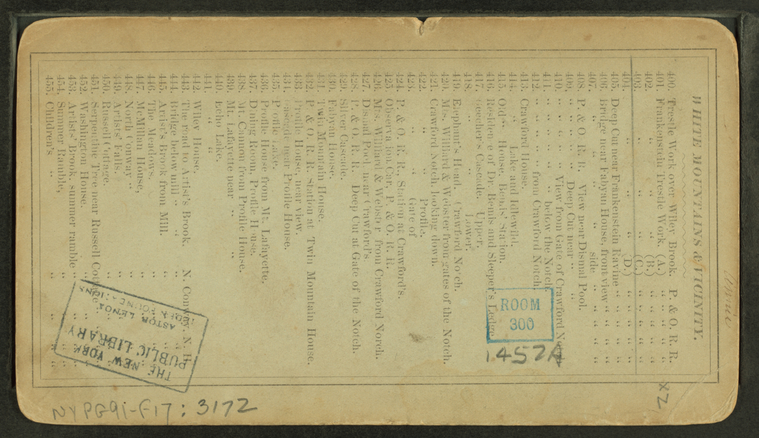 WHITE MOUNTAINS & VICINITY.
400. Trestle Work over Wiley Brook. P. & O. R. R.
401. Frankenstein Trestle Work. (A.) " "
402. " " " (B.) " "
403. " " " (C.) " "
404. " " " (D.) " "
405. Deep Cut near Frankenstein Ravine " "
406. Bridge near Fabyan House, front view " "
407. " " " " side " "
408. P. & O. R. R. View near Dismal Pool.
409. " " Deep Cut near " "
410. " " View from Gate of Crawford Notch
411. " " " below the Notch
412. " " " from Crawford Notch.
413. Crawford House.
414. " " Lake and
415. Old " House, Bemis' Station.
416. Residence of Dr. Bemis and Sleeper's Ledge
417. Beecher's Cascade, Upper.
418. " " Lower.
419. Elephant's Head, Crawford Notch.
420. Mts. Williard & Webster from gates of the Notch.
421. Crawford Notch, looking down.
422. " " Profile.
423. " " Gate of
424. P. & O. R. R., Station at Crawford's.
425. Observation Car, P. & O. R. R.
426. Mts. Willard & Webster from Crawford Notch.
427. Dismal Pool near Crawford's.
428. P. & O. R. R. Deep Cut at Gate of the Notch.
429. Silver Cascade.
430. Fabyan House.
431. Twin Mountain House.
432. P. & O. R. R. Station at Twin Mountain House.
433. Profile House, near view.
434. near Profile House.
435. Profile Lake.
436. Profile House from Mt. Lafayette.
437. Dining Room Profile House.
438. Mt. Cannon from Profile House.
439. Mt. Lafayette near " "
440. Echo Lake.
441. " "
442. House.
443. The Road to Artist's Brook. N. Conway, N. H.
444. Bridge below mill " " " "
445. Artist's Brook from Mill. " "
446. The Meadows. " "
447. McMillan House, " "
448. North Conway " "
449. Artists' Falls. " "
450. Russell Cottage. " "
451. Serpentine Tree near Russell Cottage
452. Washington House.
453. Artists' Brook, summer ramble " "
454. Summer Ramble, " "
455. Children's " " "
ROOM
300
1452A
x2
THE NEW YORK
PUBLIC LIBRARY
ASTOR, LENOX
TILDEN FOUNDATIONS
NYPG91-F17: 3172